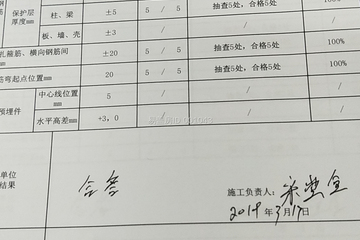 保护层厚度mm 柱、梁 ±5 5 / 5 抽查5处，合格5处 100%
板、墙、壳 ±3 / / /
扎箍筋、横向钢筋间 ±20 5 / 5 抽查5处，合格5处 100%
筋弯起点位置mm 20 5 / 5 抽查5处，合格5处 100%
预埋件 中心线位置mm 5 / / /
水平高差mm +3,0 / / /
单位
结果
合格
施工负责人：
2019年3月17日